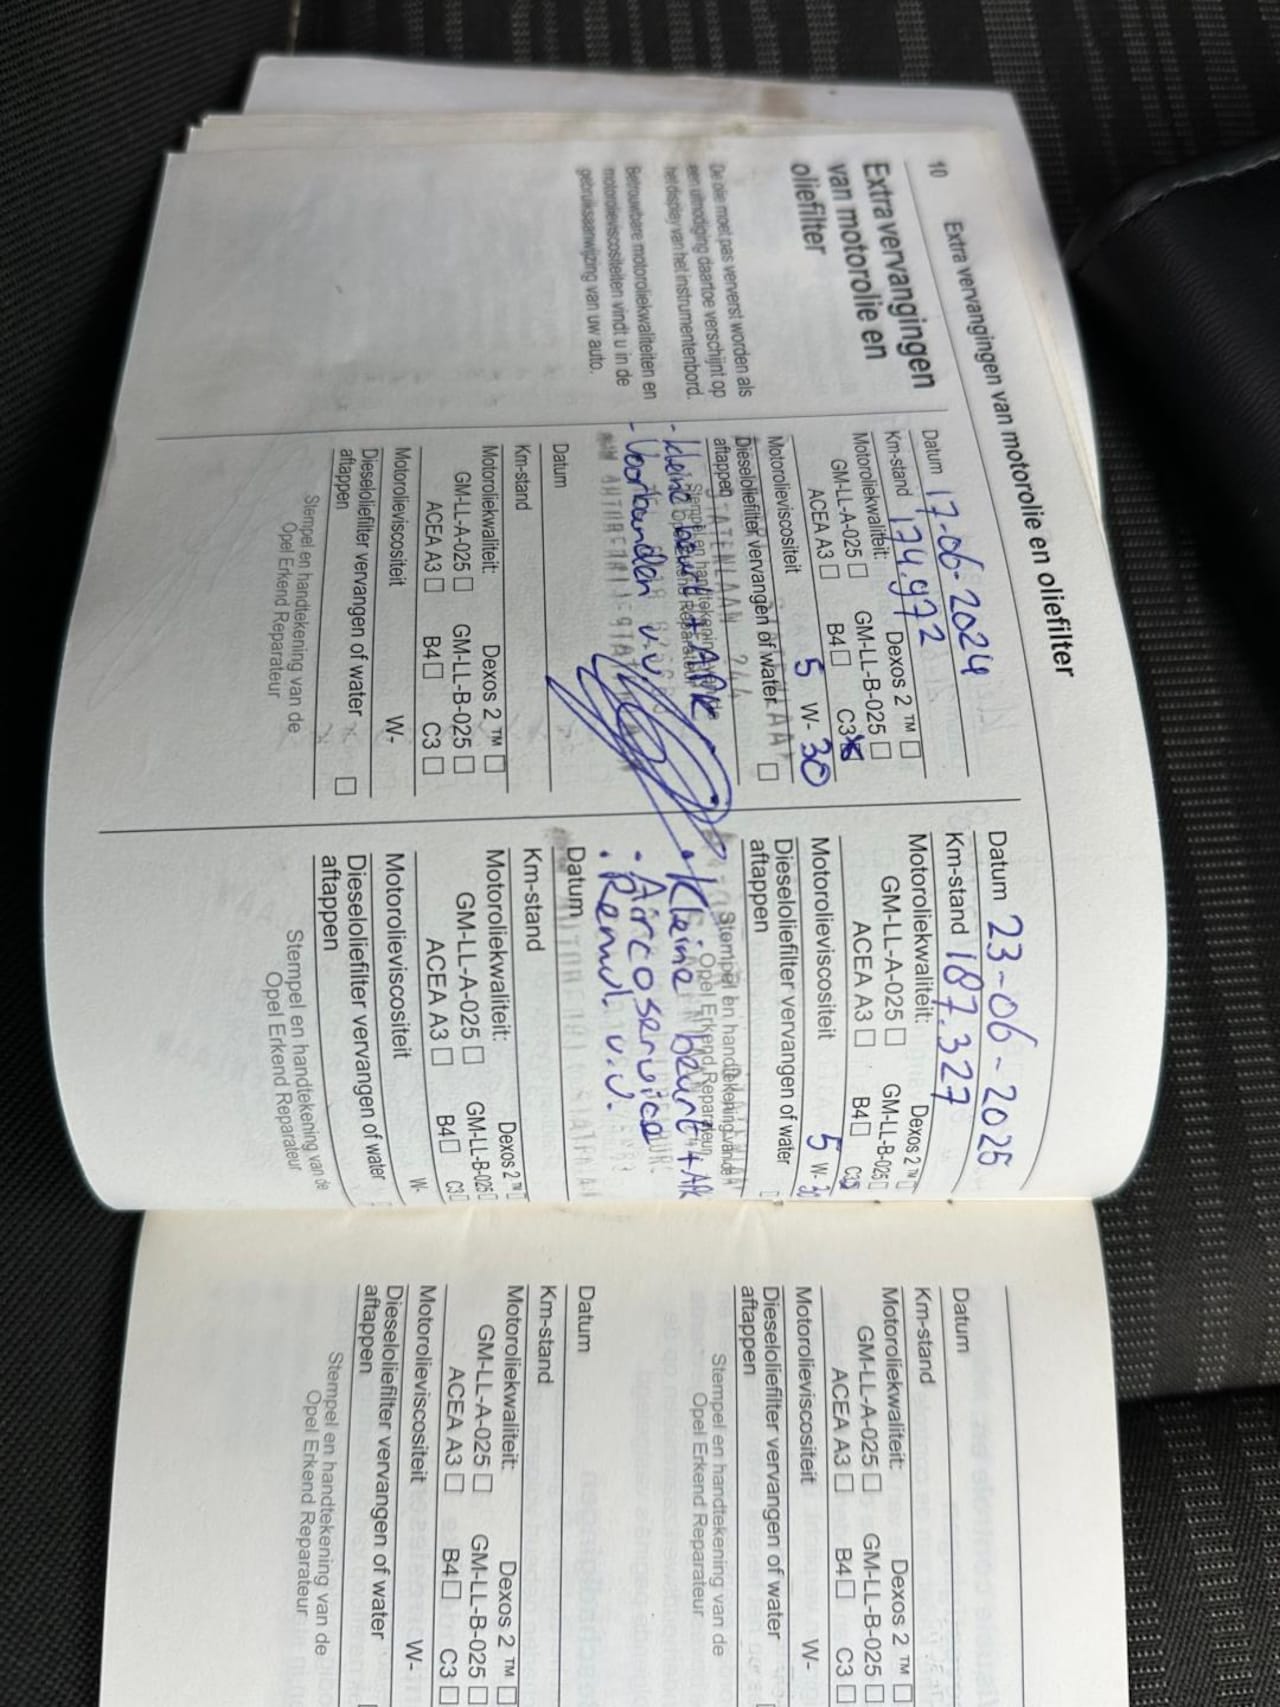 10 Extra vervangingen van motorolie en oliefilter
Extra vervangingen
van motorolie en
oliefilter
De olie moet pas ververst worden als
een uitnodiging daartoe verschijnt op
het display van het instrumentenbord.
Betrouwbare motoroliekwaliteiten en
motorolieviscositeiten vindt u in de
gebruiksaanwijzing van uw auto.
Datum 17-06-2024
Km-stand 174.972
Motoroliekwaliteit: Dexos 2 ™ ☐
GM-LL-A-025 ☐ GM-LL-B-025 ☐
ACEA A3 ☐ B4 ☐ C3 ☒
Motorolieviscositeit 5 W- 30
Dieseloliefilter vervangen of water
aftappen ☐
- kleine beurt + APK
- Voorbanden v.v.
Datum
Km-stand
Motoroliekwaliteit: Dexos 2 ™ ☐
GM-LL-A-025 ☐ GM-LL-B-025 ☐
ACEA A3 ☐ B4 ☐ C3 ☐
Motorolieviscositeit W-
Dieseloliefilter vervangen of water
aftappen ☐
Stempel en handtekening van de
Opel Erkend Reparateur
Datum 23-06-2025
Km-stand 187.327
Motoroliekwaliteit: Dexos 2 ™ ☐
GM-LL-A-025 ☐ GM-LL-B-025 ☐
ACEA A3 ☐ B4 ☐ C3 ☒
Motorolieviscositeit 5 W- 30
Dieseloliefilter vervangen of water
aftappen ☐
Stempel en handtekening van de
Opel Erkend Reparateur
• Kleine beurt + APK
• Aircoservice
• Remvl. v.v.
Datum
Km-stand
Motoroliekwaliteit: Dexos 2 ™ ☐
GM-LL-A-025 ☐ GM-LL-B-025 ☐
ACEA A3 ☐ B4 ☐ C3 ☐
Motorolieviscositeit W-
Dieseloliefilter vervangen of water
aftappen
Stempel en handtekening van de
Opel Erkend Reparateur
Datum
Km-stand
Motoroliekwaliteit: Dexos 2 ™ ☐
GM-LL-A-025 ☐ GM-LL-B-025 ☐
ACEA A3 ☐ B4 ☐ C3 ☐
Motorolieviscositeit W-
Dieseloliefilter vervangen of water
aftappen
Stempel en handtekening van de
Opel Erkend Reparateur
Datum
Km-stand
Motoroliekwaliteit: Dexos 2 ™ ☐
GM-LL-A-025 ☐ GM-LL-B-025 ☐
ACEA A3 ☐ B4 ☐ C3 ☐
Motorolieviscositeit W-
Dieseloliefilter vervangen of water
aftappen
Stempel en handtekening van de
Opel Erkend Reparateur